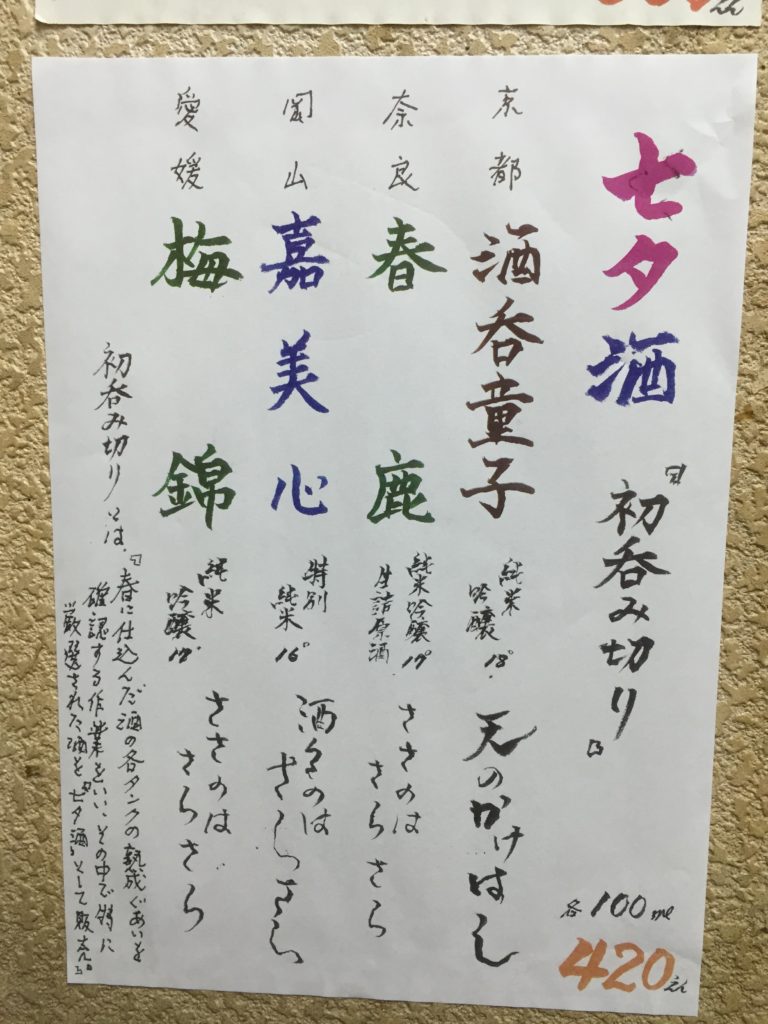 七夕酒 『初呑み切り』
各100ml
420えん
京都 酒呑童子 純米吟醸 18° 天のかけはし
奈良 春鹿 純米吟醸 生詰原酒 17° ささのは さらさら
岡山 嘉美心 特別純米 16° 酒々のは さらさら
愛媛 梅錦 純米吟醸 17° ささのは さらさら
初呑み切りとは、『春に仕込んだ酒の各タンクの熟成ぐあいを
確認する作業をいい、その中で特に
厳選された酒を"七夕酒"として販売。』
えん